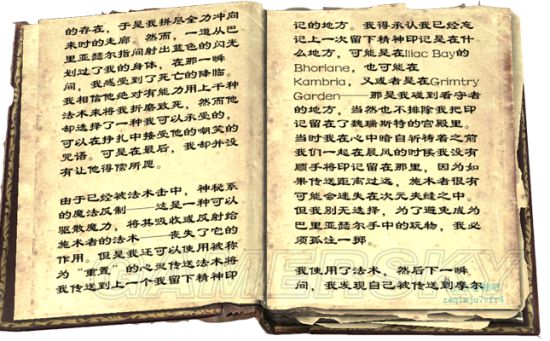 的存在，于是我拼尽全力冲向
来时的走廊。然而，一道从巴
里亚瑟尔指间射出蓝色的闪光
划过了我的身体，在那一瞬
间，我感受到了死亡的降临。
我相信他绝对有能力用上千种
法术来将我折磨致死，然而他
却选择了一种我可以承受的，
可以在挣扎中接受他的嘲笑的
咒语。可是在最后，我却并没
有让他得偿所愿。
由于已经被法术击中，神秘系
的魔法反制——这是一种可以
驱散魔力，将其吸收或反射给
施术者的法术——丧失了它的
作用。但是我还可以使用被称
为“重置”的心灵传送法术将
我传送到上一个我留下精神印
记的地方。我得承认我已经忘
记上一次留下精神印记是在什
么地方，可能是在Iliac Bay的
Bhoriane，也可能在
Kambria，又或者是在Grimtry
Garden——那是我碰到看守者
的地方，当然也不排除我把印
记留在了魏瑞斯特的宫殿里。
当时我在心中暗自祈祷着之前
我们一起在晨风的时候我没有
顺手将印记留在那里，因为如
果传送距离过远，施术者很有
可能会迷失在次元夹缝之中。
但我别无选择，为了避免成为
巴里亚瑟尔手中的玩物，我必
须孤注一掷。
我使用了法术，然后下一瞬
间，我发现自己被传送到摩尔
GAMERSKY
zaq1mju7vfr4